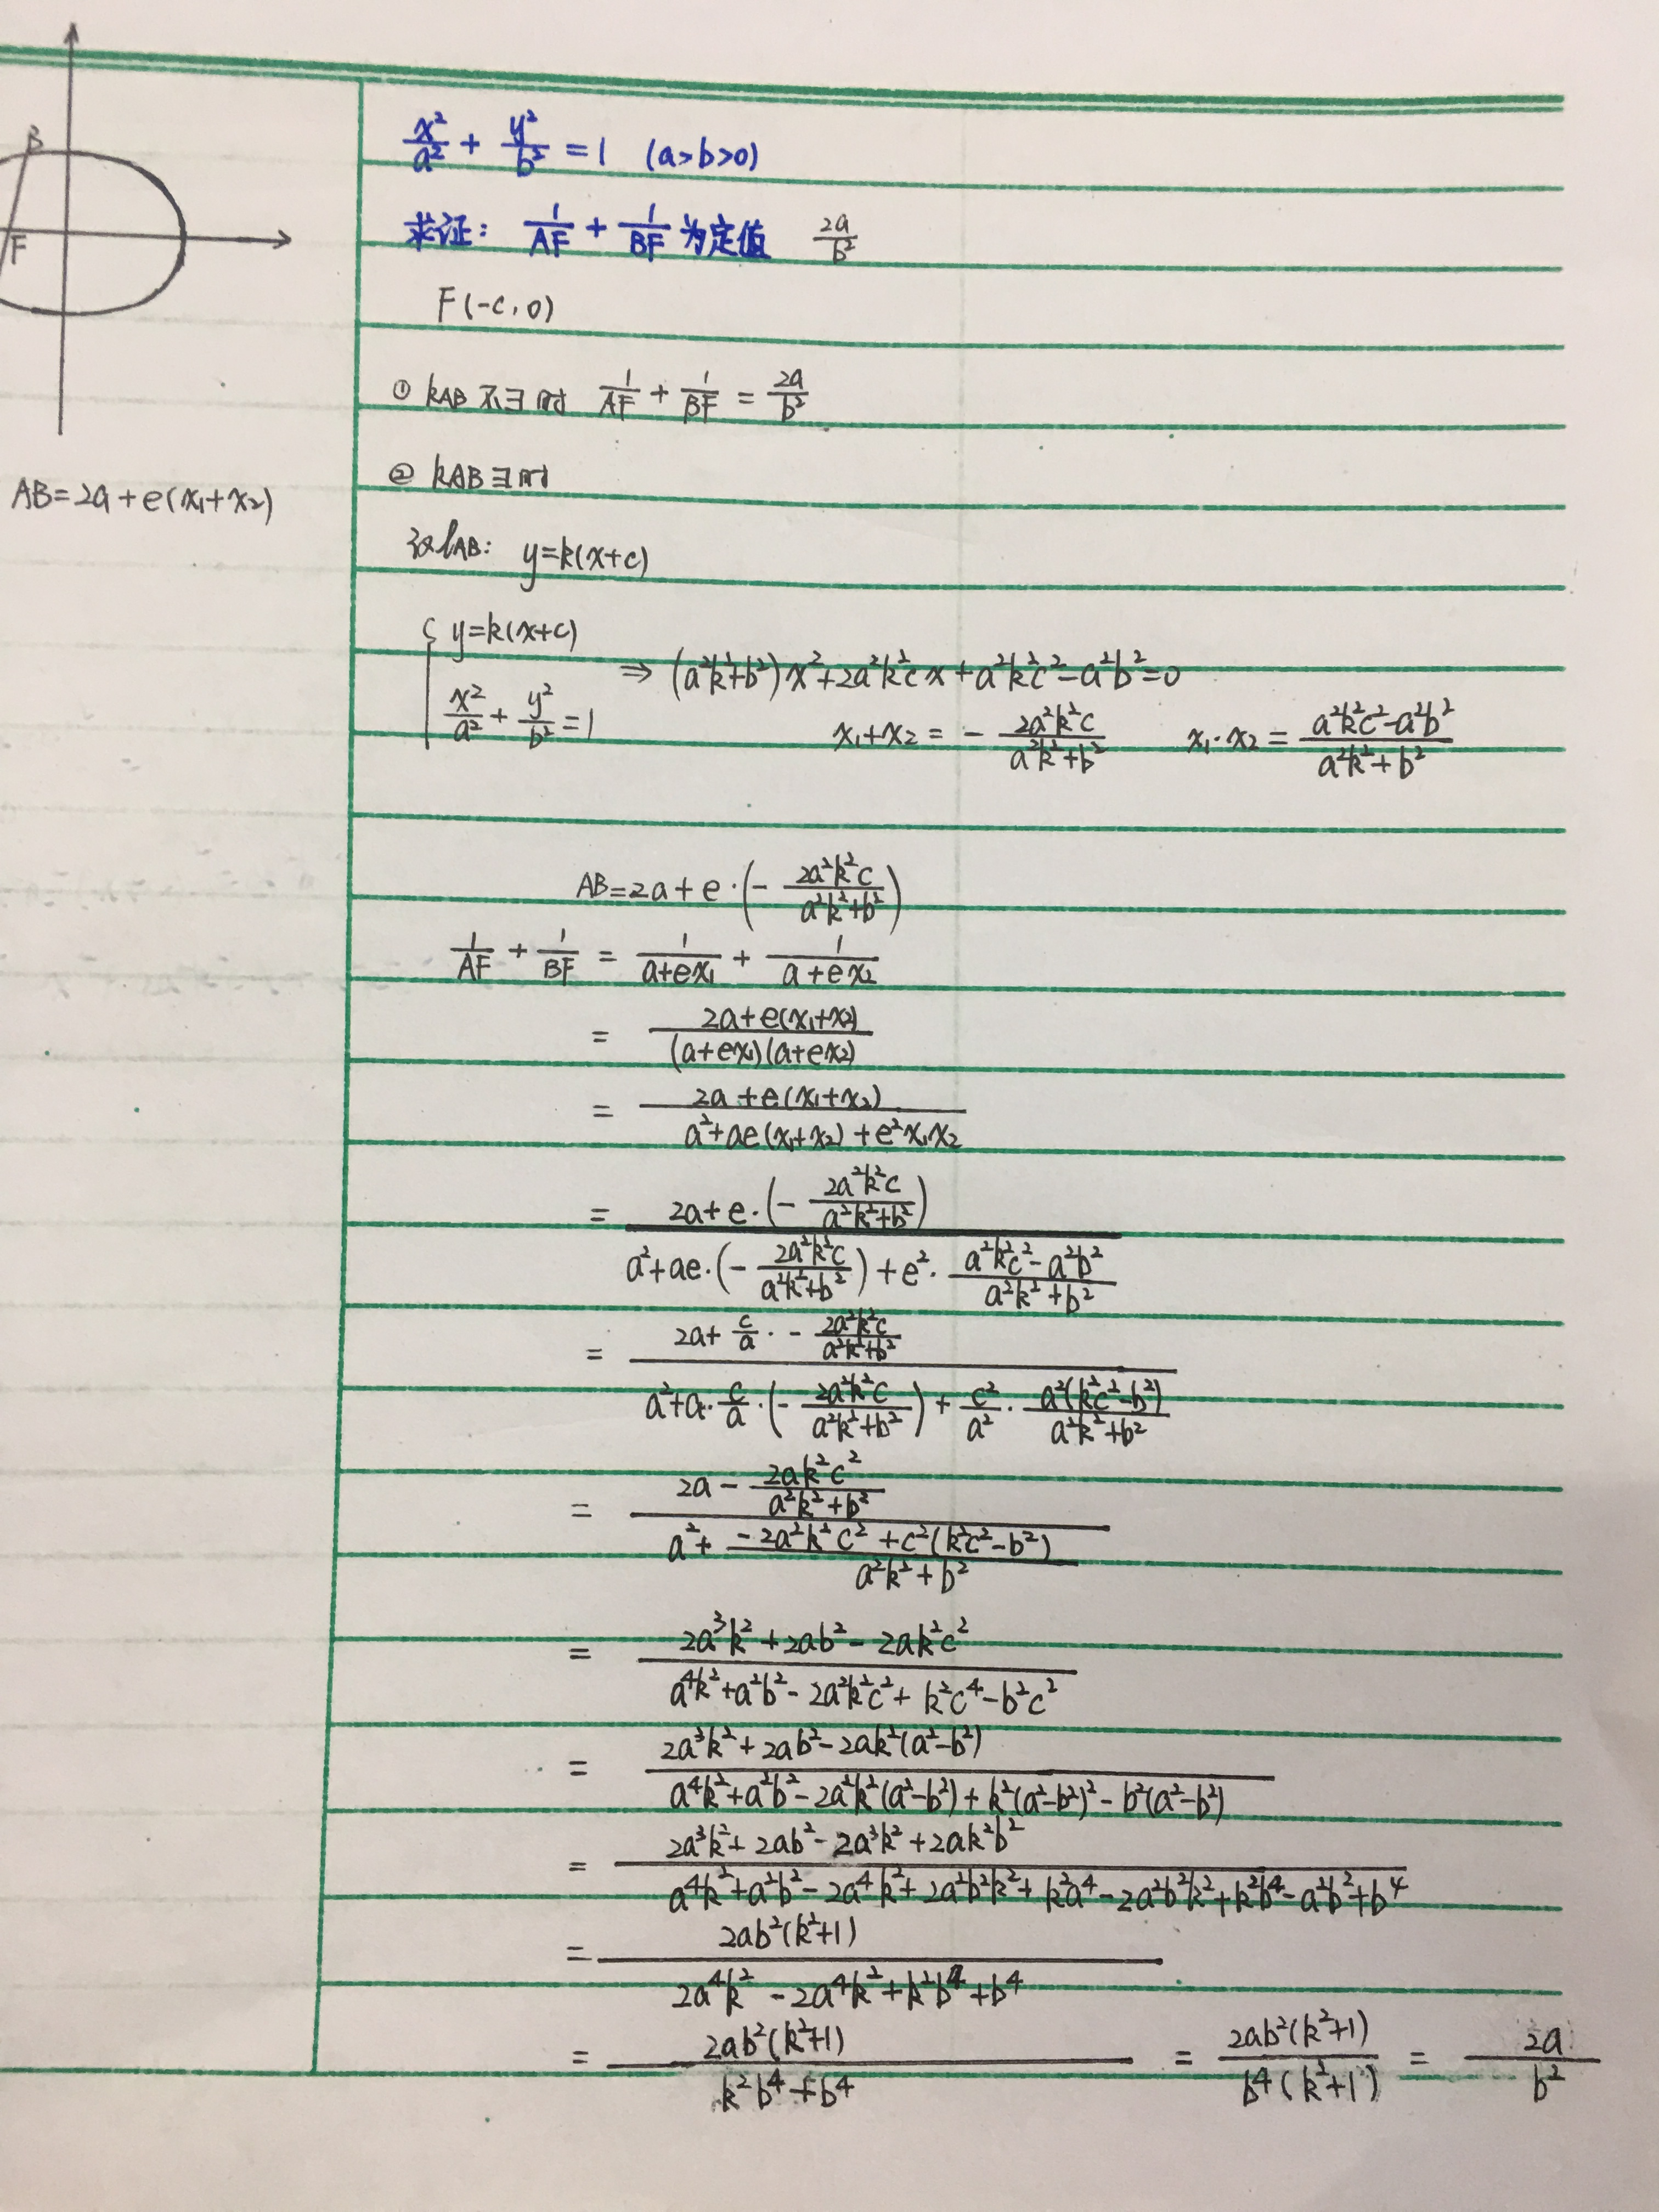 B
F
AB=2a+e(x₁+x₂)
x²/a² + y²/b² = 1 (a>b>0)
求证: 1/AF + 1/BF 为定值 2a/b²
F(-c,0)
① kAB 不∃时 1/AF + 1/BF = 2a/b²
② kAB∃时
设lAB: y=k(x+c)
{ y=k(x+c)
x²/a² + y²/b² = 1
⇒ (a²k²+b²)x²+2a²k²cx+a²k²c²-a²b²=0
x₁+x₂ = - 2a²k²c/(a²k²+b²) x₁·x₂ = (a²k²c²-a²b²)/(a²k²+b²)
AB=2a+e·(- 2a²k²c/(a²k²+b²))
1/AF + 1/BF = 1/(a+ex₁) + 1/(a+ex₂)
= (2a+e(x₁+x₂))/((a+ex₁)(a+ex₂))
= (2a+e(x₁+x₂))/(a²+ae(x₁+x₂)+e²x₁x₂)
= (2a+e·(- 2a²k²c/(a²k²+b²)))/(a²+ae·(- 2a²k²c/(a²k²+b²))+e²·(a²k²c²-a²b²)/(a²k²+b²))
= (2a+ c/a · - 2a²k²c/(a²k²+b²))/(a²+a·c/a·(- 2a²k²c/(a²k²+b²))+ c²/a² · a²(k²c²-b²)/(a²k²+b²))
= (2a - 2ak²c²/(a²k²+b²))/(a²+ (-2a²k²c²+c²(k²c²-b²))/(a²k²+b²))
= (2a³k²+2ab²-2ak²c²)/(a⁴k²+a²b²-2a²k²c²+k²c⁴-b²c²)
= (2a³k²+2ab²-2ak²(a²-b²))/(a⁴k²+a²b²-2a²k²(a²-b²)+k²(a²-b²)²-b²(a²-b²))
= (2a³k²+2ab²-2a³k²+2ak²b²)/(a⁴k²+a²b²-2a⁴k²+2a²b²k²+k²a⁴-2a²b²k²+k²b⁴-a²b²+b⁴)
= 2ab²(k²+1)/(2a⁴k²-2a⁴k²+k²b⁴+b⁴)
= 2ab²(k²+1)/(k²b⁴+b⁴) = 2ab²(k²+1)/(b⁴(k²+1)) = 2a/b²